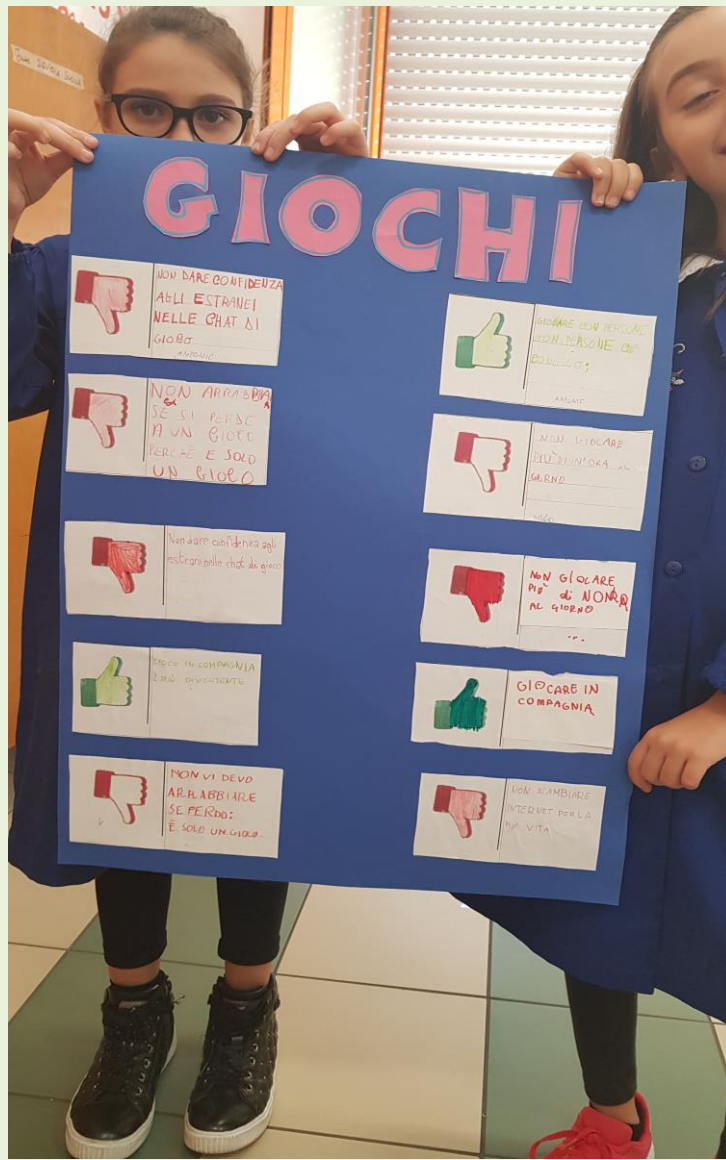 GIOCHI
NON DARE CONFIDENZA
AGLI ESTRANEI
NELLE CHAT DI
GIOCO
ANTONIO
NON ARRABBIA
SE SI PERDE
A UN GIOCO
PERCHÈ E SOLO
UN GIOCO
Non dare confidenza agli
estranei nelle chat di gioco
GIOCO IN COMPAGNIA
È PIÙ DIVERTENTE
NON VI DEVO
ARRABBIARE
SE PERDO:
È SOLO UN GIOCO.
GIOCARE CON PERSONE
CON PERSONE CHE
CONOSCO;
NON GIOCARE
PIÙ DI UN'ORA AL
GIORNO
NON GIOCARE
PIÙ di NORA
AL GIORNO
GIOCARE IN
COMPAGNIA
NON SCAMBIARE
INTERNET PER LA
VITA